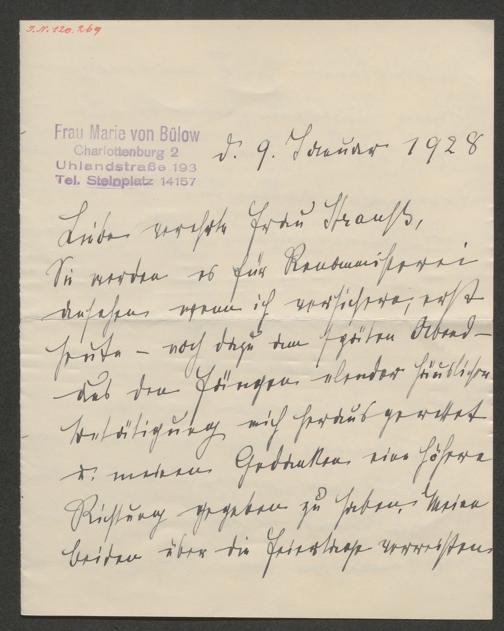 I.N. 120.269
Frau Marie von Bülow
Charlottenburg 2
Uhlandstraße 193
Tel. Steinplatz 14157
d. 9. Januar 1928
Liebe verehrte Frau Strauß,
Sie werden es für Renommisterei
ansehen wenn ich versichere, erst
heute – noch dazu am späten Abend –
aus den Fängen elender häuslicher
Betätigung mich herausgerettet
u. meinen Gedanken eine höhere
Richtung gegeben zu haben. Meine
beiden über die Feiertage verreisten